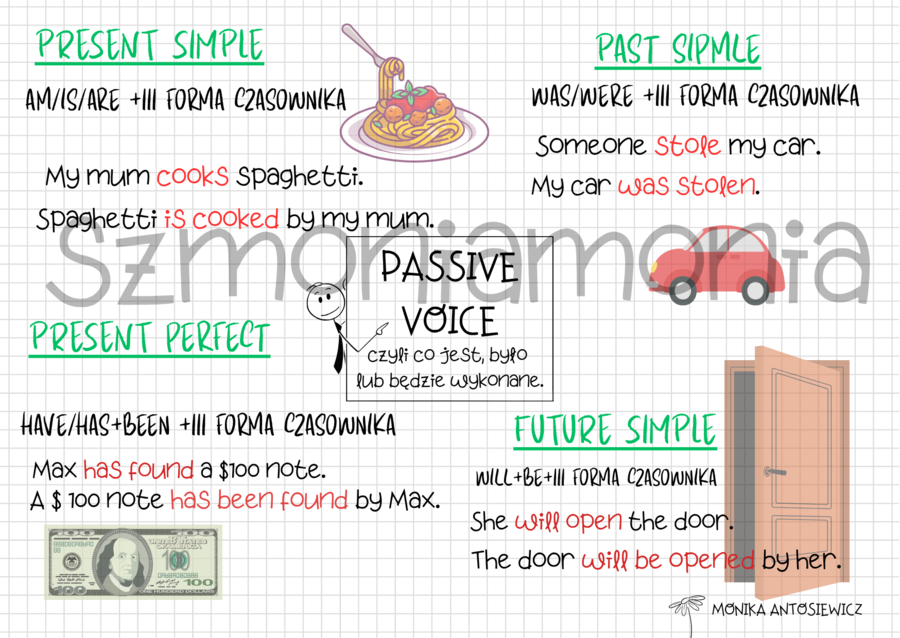 PRESENT SIMPLE
AM/IS/ARE +III FORMA CZASOWNIKA
My mum cooks spaghetti.
Spaghetti is cooked by my mum.
PAST SIPMLE
WAS/WERE +III FORMA CZASOWNIKA
Someone stole my car.
My car was stolen.
szmoniamonia
PASSIVE
VOICE
czyli co jest, było
lub będzie wykonane.
PRESENT PERFECT
HAVE/HAS+BEEN +III FORMA CZASOWNIKA
Max has found a $100 note.
A $ 100 note has been found by Max.
100
FUTURE SIMPLE
WILL+BE+III FORMA CZASOWNIKA
She will open the door.
The door will be opened by her.
MONIKA ANTOSIEWICZ